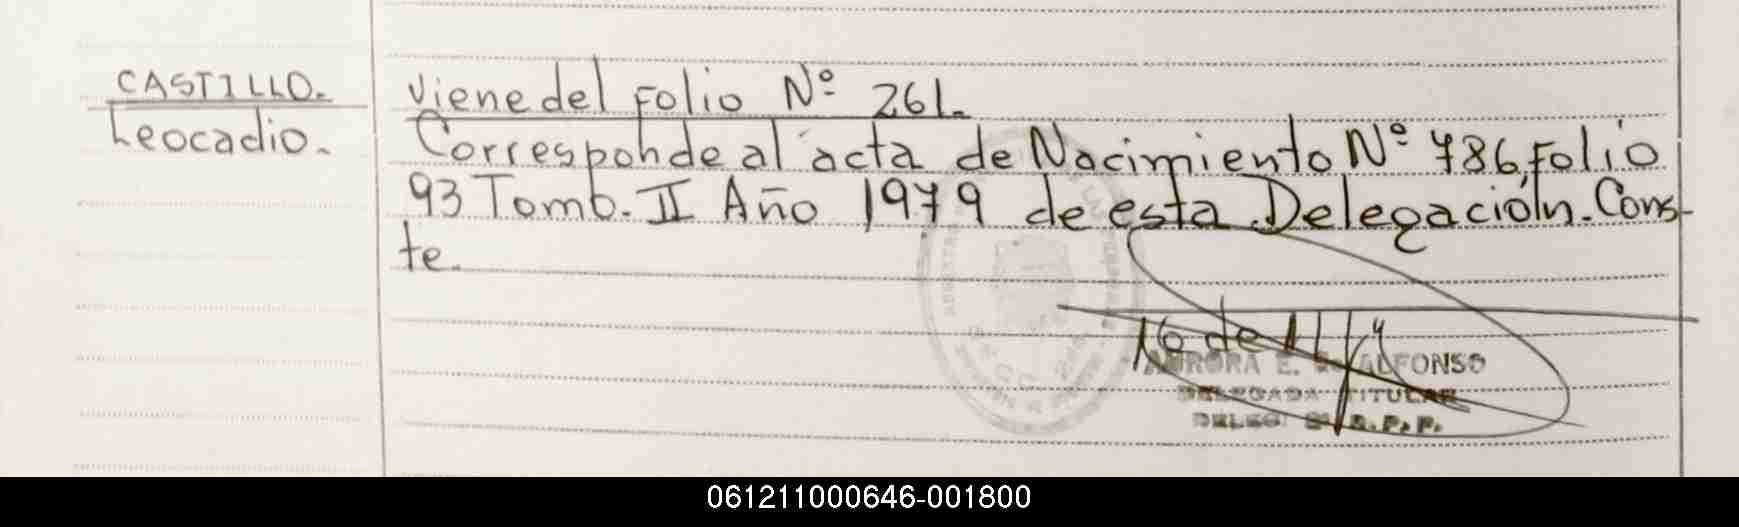 CASTILLO.
Leocadio.
viene del Folio Nº 261.-
Corresponde al acta de Nacimiento Nº 786, Folio
93 Tomo. II Año 1979 de esta Delegación. Cons-
te.
16 de
AURORA E. ALFONSO
DELEGADA TITULAR
DELEG. R.P.P.
061211000646-001800